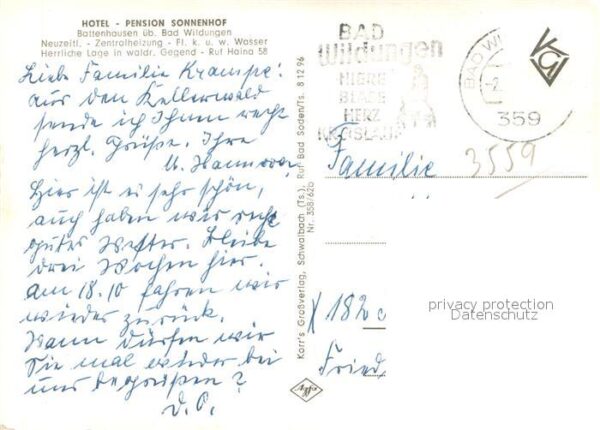 HOTEL - PENSION SONNENHOF
Battenhausen üb. Bad Wildungen
Neuzeitl. - Zentralheizung - Fl. k. u. w. Wasser
Herrliche Lage in waldr. Gegend - Ruf Haina 58
Liebe Familie Krampe!
aus den Kellerwald
sende ich Ihnen recht
herzl. Grüße. Ihre
Hier ist es sehr schön,
auch haben wir recht
gutes Wetter. Bleibe
drei Wochen hier.
am 18.10 fahren wir
wieder zurück.
Wann dürfen wir
Sie mal wieder bei
uns begrüßen?
D.O.
Korr's Großverlag, Schwalbach (Ts.), Ruf Bad Soden/Ts. 8 12 96
Nr. 358/62b
BAD
Wildungen
NIERE
BLASE
HERZ
KREISLAUF
BAD WI
359
Familie
3559
X 182c
Fried
privacy protection
Datenschutz
Agfa